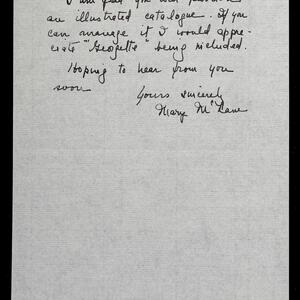 an illustrated catalogue. If you
can manage it I would appre-
ciate "Georgette" being included.
Hoping to hear from you
soon
Yours sincerely
Mary McCane